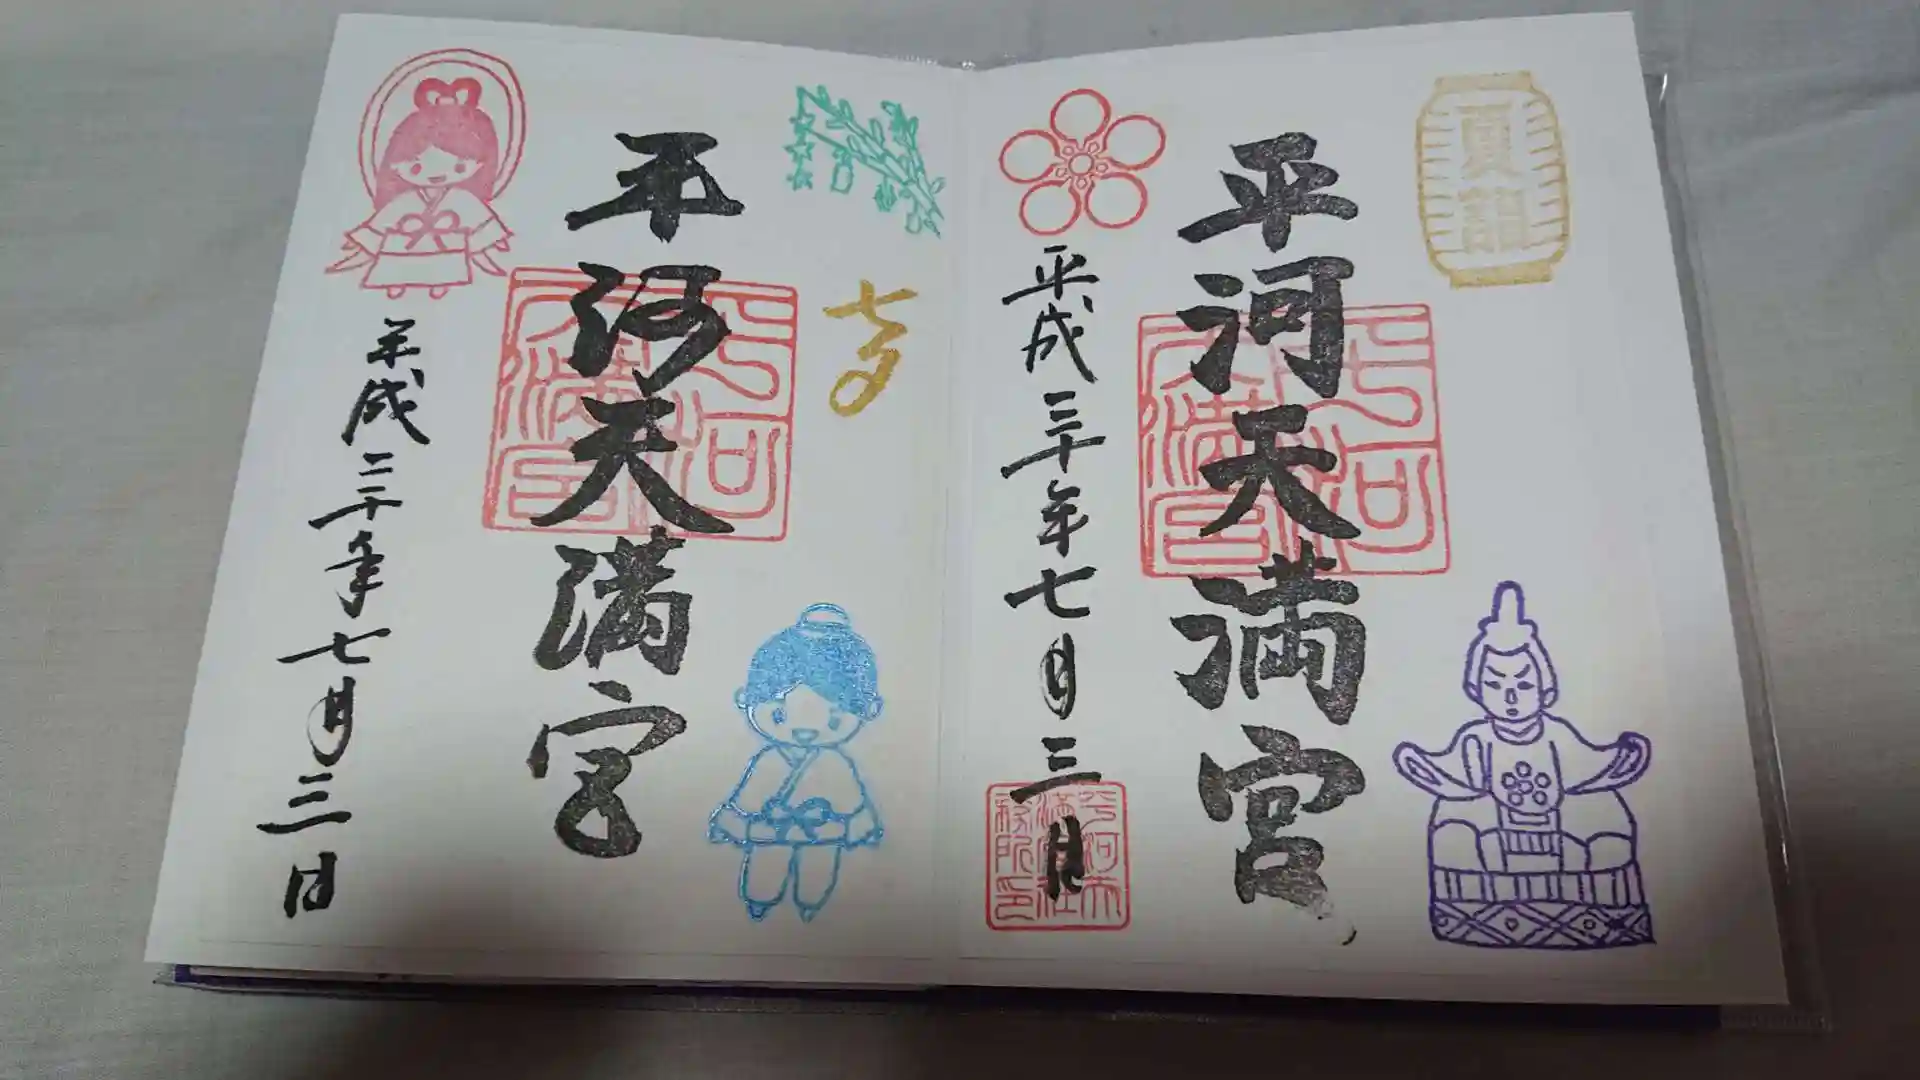 夏詣
平河天満宮
平成三十年七月三日
平河天満宮社務所印
七夕
平河天満宮
平成三十年七月三日